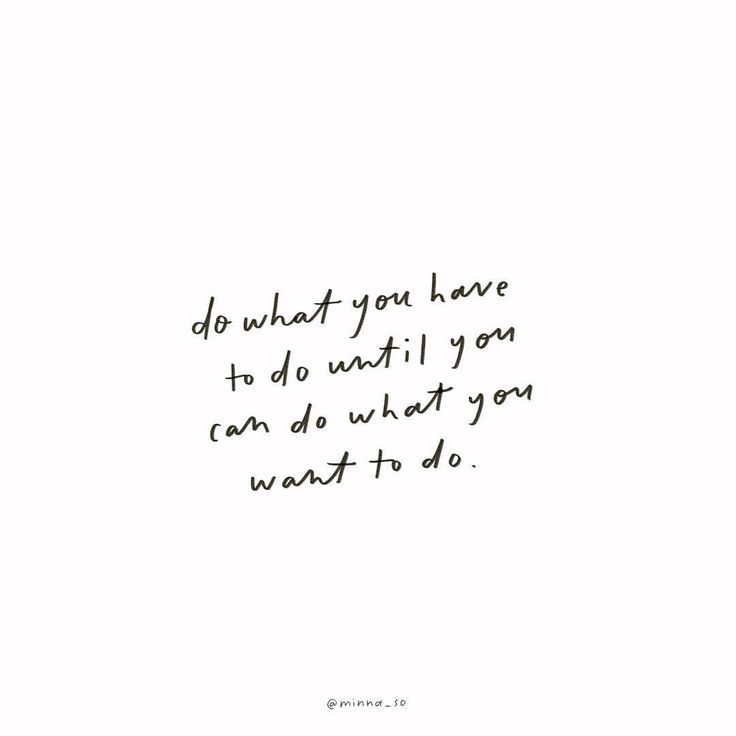 do what you have
to do until you
can do what you
want to do.
@minna_so